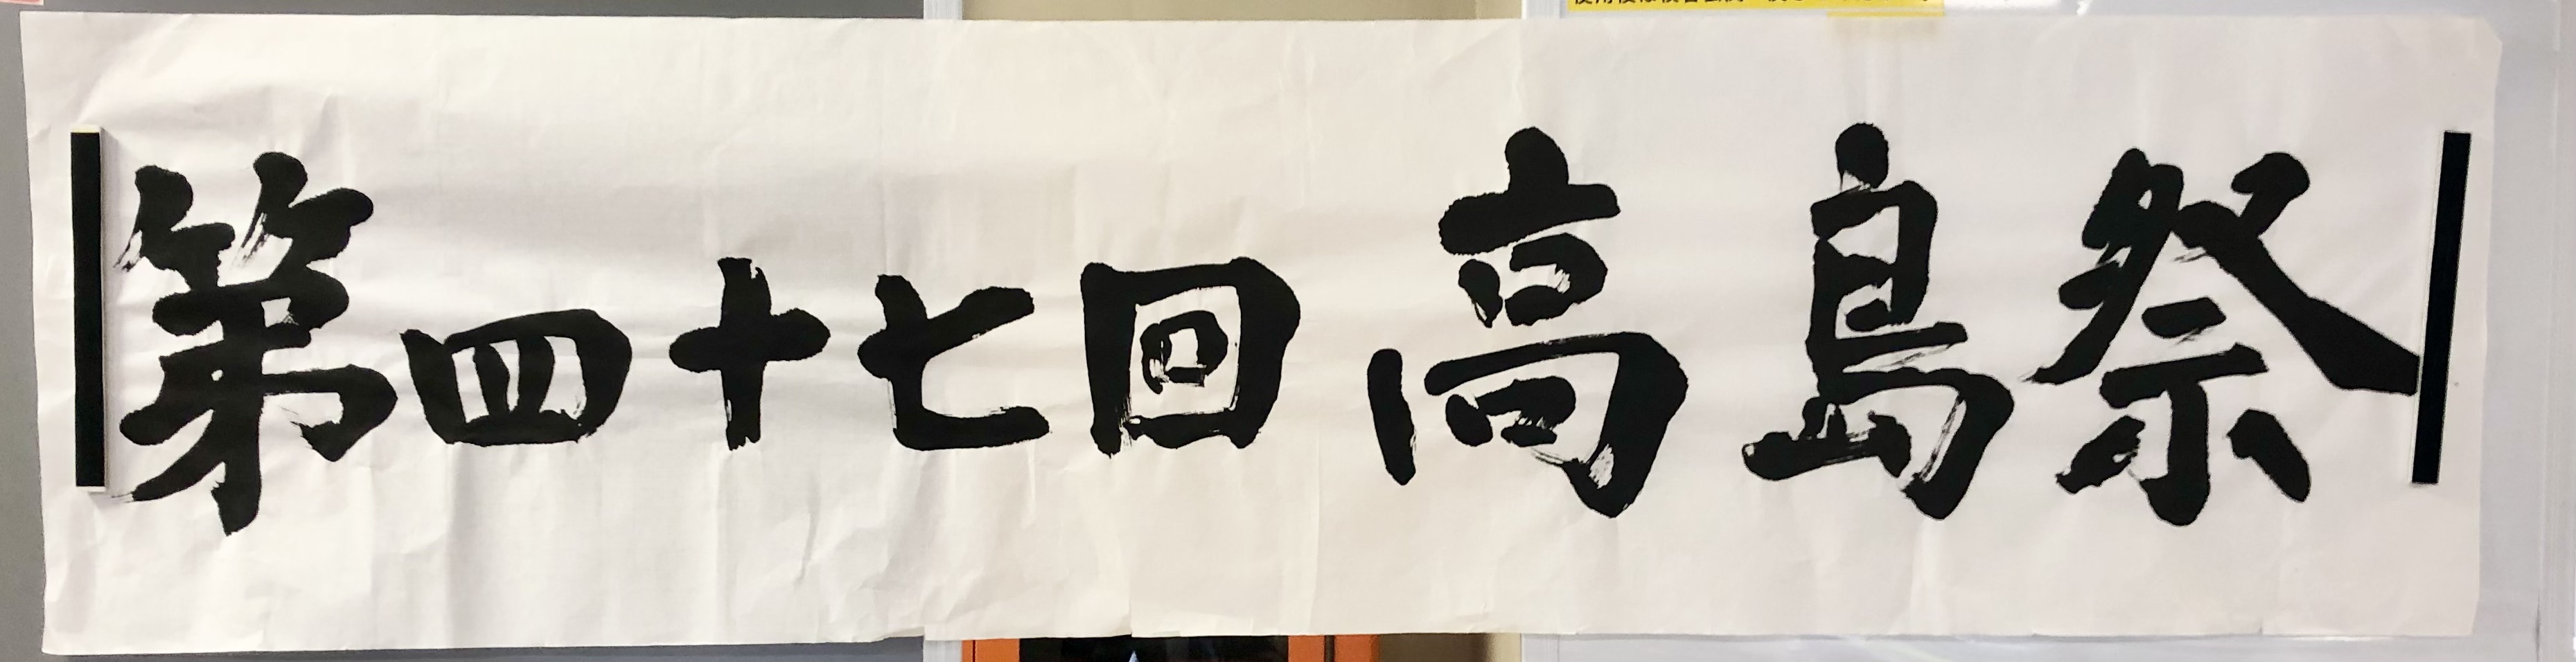 第四十七回高島祭